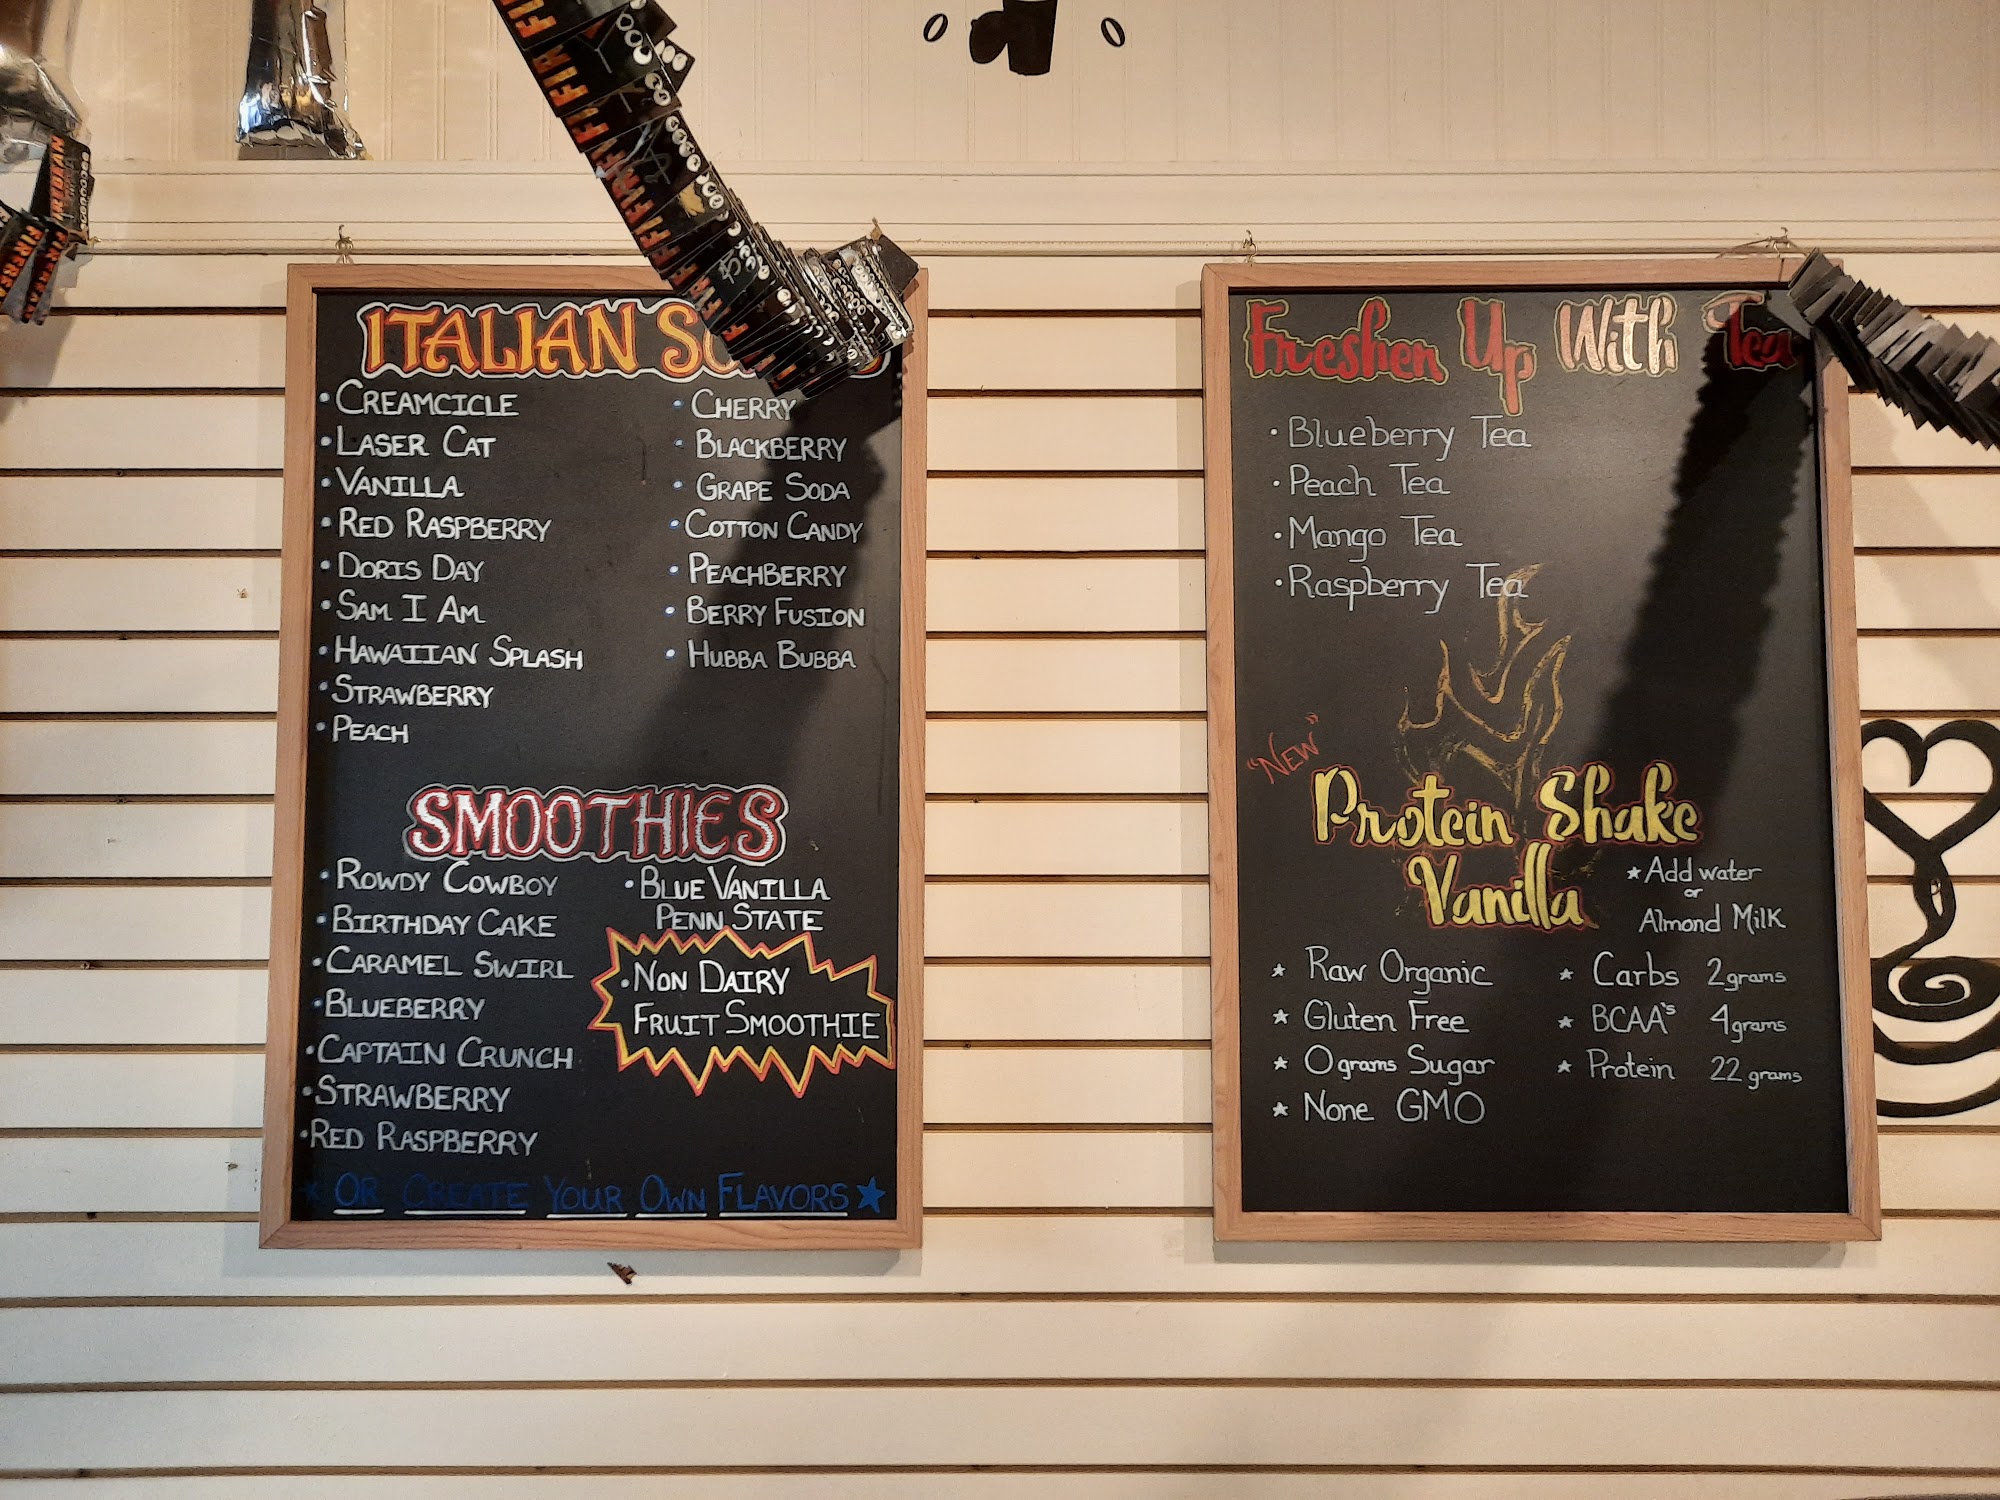 ITALIAN
• CREAMCICLE
• LASER CAT
• VANILLA
• RED RASPBERRY
• DORIS DAY
• SAM I AM
• HAWAIIAN SPLASH
• STRAWBERRY
• PEACH
• CHERRY
• BLACKBERRY
• GRAPE SODA
• COTTON CANDY
• PEACHBERRY
• BERRY FUSION
• HUBBA BUBBA
SMOOTHIES
• ROWDY COWBOY
• BIRTHDAY CAKE
• CARAMEL SWIRL
• BLUEBERRY
• CAPTAIN CRUNCH
• STRAWBERRY
• RED RASPBERRY
• BLUE VANILLA
PENN STATE
• NON DAIRY
FRUIT SMOOTHIE
★ OR CREATE YOUR OWN FLAVORS ★
Freshen Up With Tea
• Blueberry Tea
• Peach Tea
• Mango Tea
• Raspberry Tea
"NEW"
Protein Shake
Vanilla
★ Add water
or
Almond Milk
★ Raw Organic
★ Gluten Free
★ 0 grams Sugar
★ None GMO
★ Carbs 2 grams
★ BCAA's 4 grams
★ Protein 22 grams